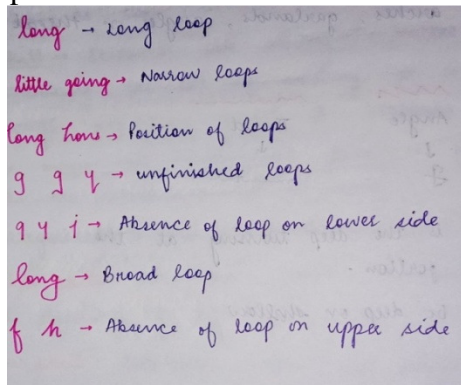 long → Long loop
little going → Narrow loops
long hons → Position of loops
g g y → unfinished loops
g y j → Absence of loop on lower side
long → Broad loop
f h → Absence of loop on upper side